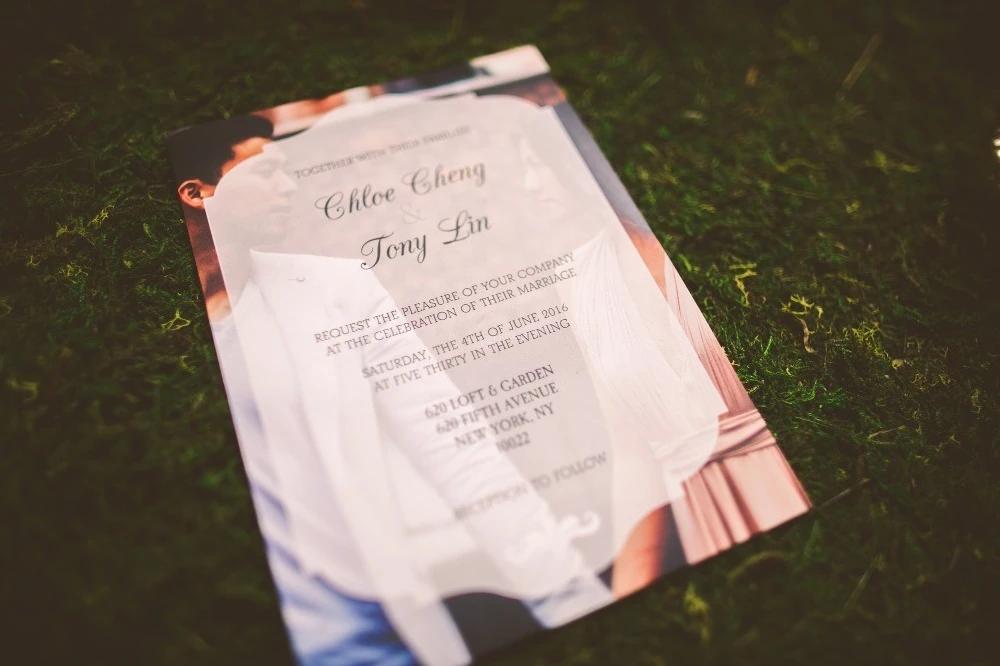 TOGETHER WITH THEIR FAMILIES
Chloe Cheng
&
Tony Lin
REQUEST THE PLEASURE OF YOUR COMPANY
AT THE CELEBRATION OF THEIR MARRIAGE
SATURDAY, THE 4TH OF JUNE 2016
AT FIVE THIRTY IN THE EVENING
620 LOFT & GARDEN
620 FIFTH AVENUE
NEW YORK, NY
10022
RECEPTION TO FOLLOW